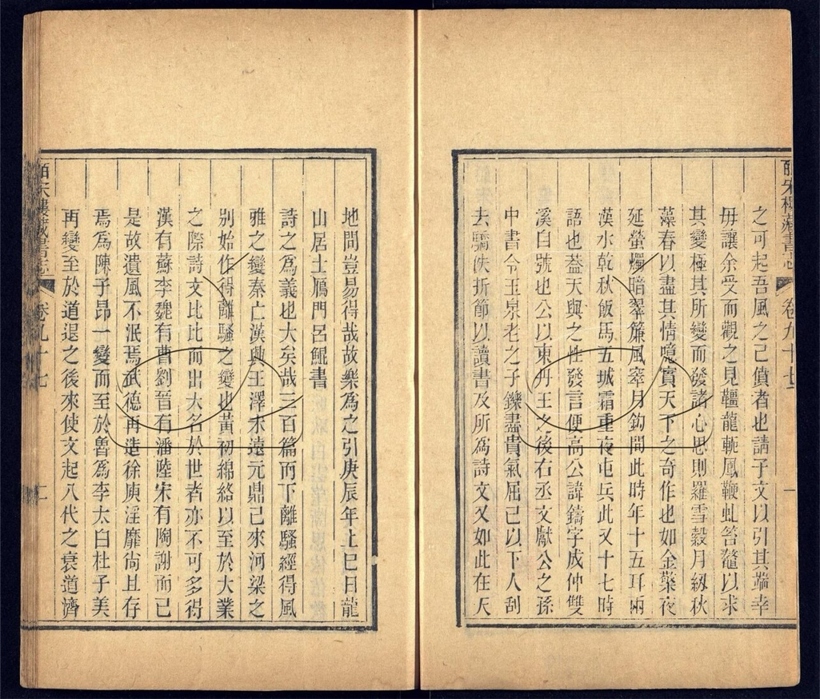 皕宋樓藏書志 卷九十七 一
之可起吾風之已僨者也請予文以引其端幸
毋讓余受而觀之見韁龍軛鳳鞭虬笞鼇以求
其變極其所變而發諸心思則羅雪縠月紉秋
藻春以盡其情噫實天下之奇作也如金莖夜
延螢燭暗翠簾風窣月鉤閒此時年十五耳兩
漢水乾秋飯馬五城霜重夜屯兵此又十七時
語也葢天與之性發言便高公諱鑄字成仲雙
溪自號也公以東丹王之後右丞文獻公之孫
中書令玉泉老之子鑠盡貴氣屈己以下人刮
去驕佚折節以讀書及所爲詩文又如此在天
地間豈易得哉故樂爲之引庚辰年上巳日龍
山居士鴈門呂鯤書
詩之爲義也大矣哉三百篇而下離騷經得風
雅之變秦亡漢興王澤未遠元鼎已來河梁之
別始作得離騷之變也黃初綿絡以至於大業
之際詩文比比而出大名於世者亦不可多得
漢有蘇李魏有曹劉晉有潘陸宋有陶謝而已
是故遺風不泯焉武德再造徐庾淫靡尙且存
焉爲陳子昂一變而至於魯爲李太白杜子美
再變至於道退之後來使文起八代之衰道濟
皕宋樓藏書志 卷九十七 二